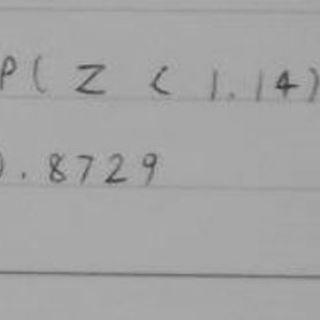 P( Z < 1.14)
0.8729